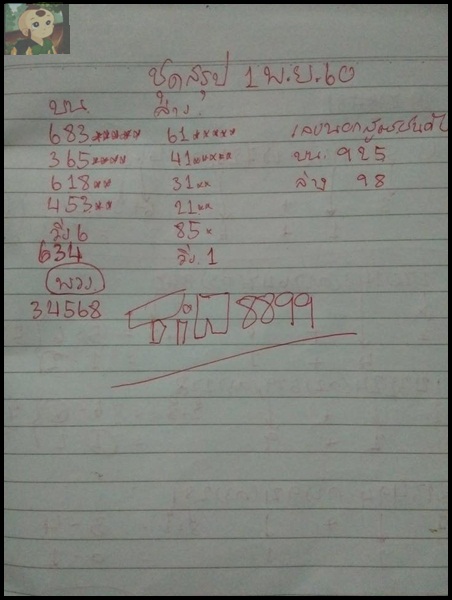 ชุดสรุป 1 พ.ย. 60
บน ล่าง
683***** 61*****
365**** 41*****
618** 31**
453** 21**
วิ่ง 6 85*
634 วิ่ง. 1
พวง
34568
เลขนอกสูตร
บน. 925
ล่าง 98
8899